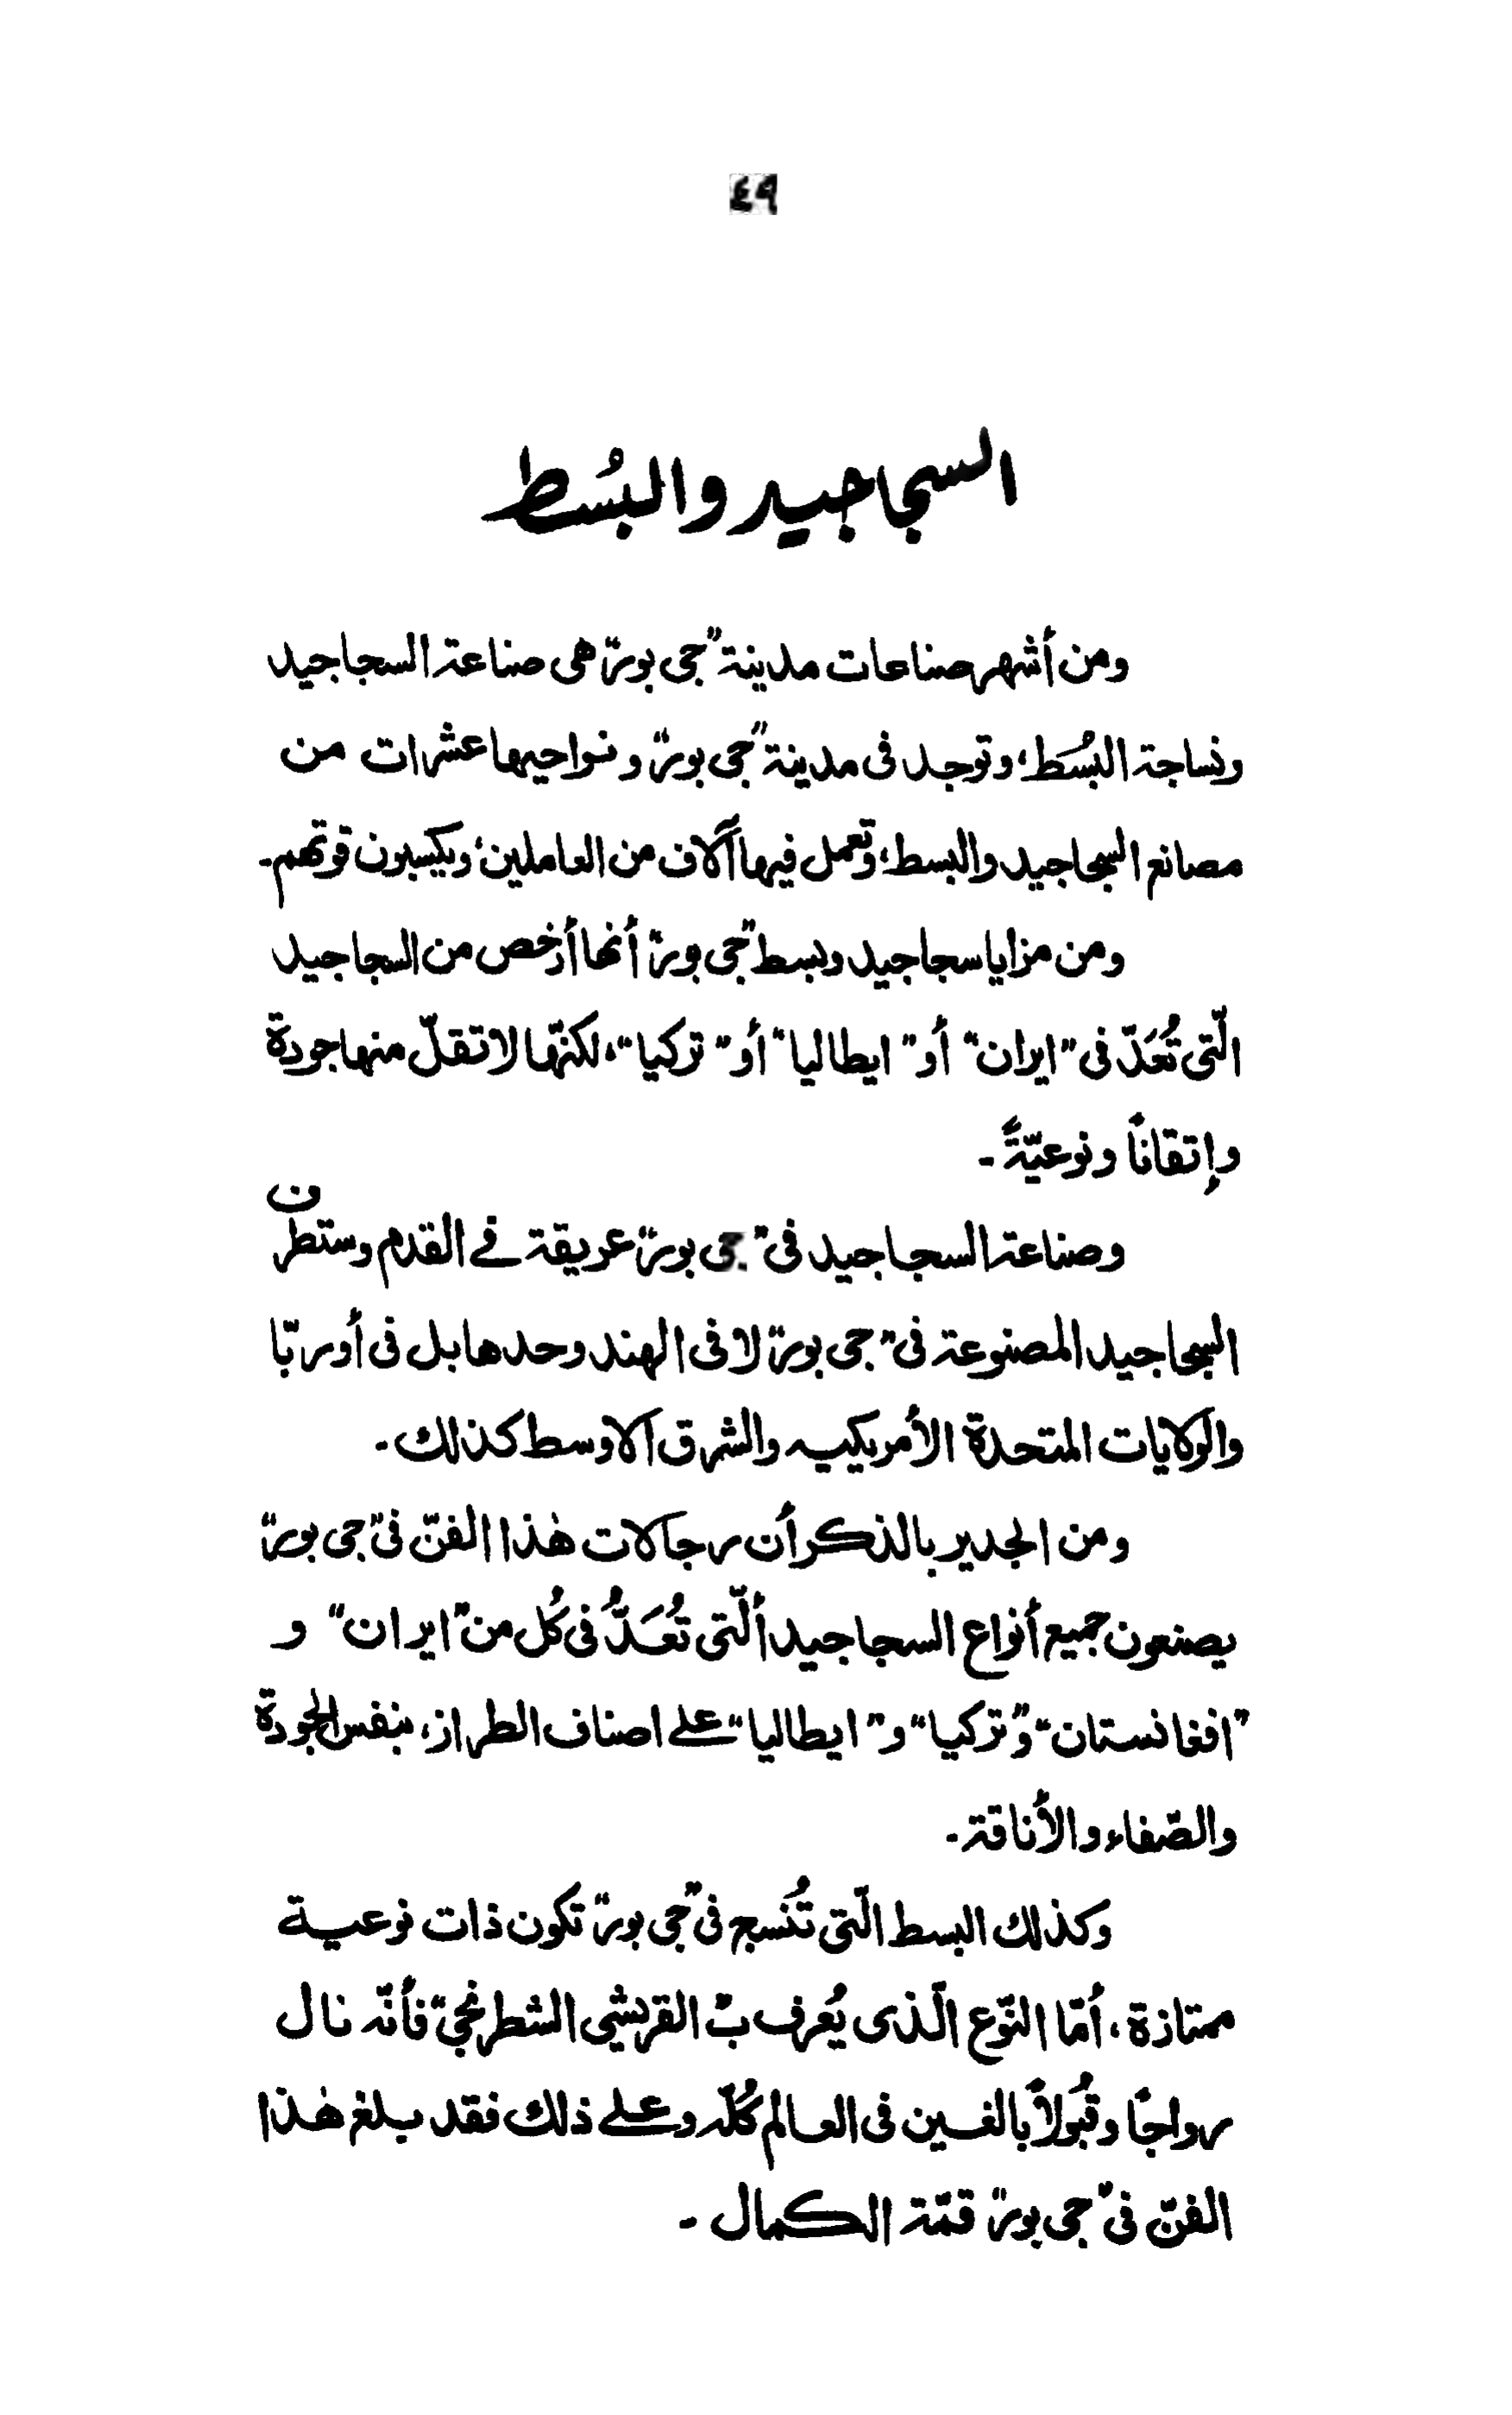 ٤٩
السجاجيد والبُسط
ومن أشهر صناعات مدينة "جى بور" هى صناعة السجاجيد
ونساجة البُسَط، وتوجد فى مدينة "جى بور" و نواحيها عشرات من
مصانع السجاجيد والبسط، وتعمل فيها آلاف من العاملين، ويكسبون قوتهم-
ومن مزايا سجاجيد وبسط "جى بور" أنها أرخص من السجاجيد
الّتى تُعَدّ فى "ايران" أو "ايطاليا" أو "تركيا"، لكنّها لا تقلّ منها جودة
وإتقاناً ونوعيّةً -
وصناعة السجاجيد فى "جى بور" عريقة في القدم وستطرن
السجاجيد المصنوعة فى "جى بور" لا فى الهند وحدها بل فى أوربّا
والولايات المتحدة الأمريكيه والشرق الاوسط كذلك -
ومن الجدير بالذكر أن رجالات هٰذا الفنّ فى "جى بور"
يصنعون جميع أنواع السجاجيد ألّتى تُعَدُّ فى كُل من "ايران" و
"افغانستان" و"تركيا" و "ايطاليا" على اصناف الطراز، بنفس الجودة
والصّفاء والأناقة -
وكذلك البسط الّتى تُنسج فى "جى بور" تكون ذات نوعية
ممتازة، أمّا النّوع الّذى يُعرف ب "القريشي الشطرنجي" فأنّه نال
رواجًا وقبُولاً بالغين فى العالم كُلّه وعلى ذلك فقد بلغ هٰذا
الفنّ فى "جى بور" قمّة الكمال -